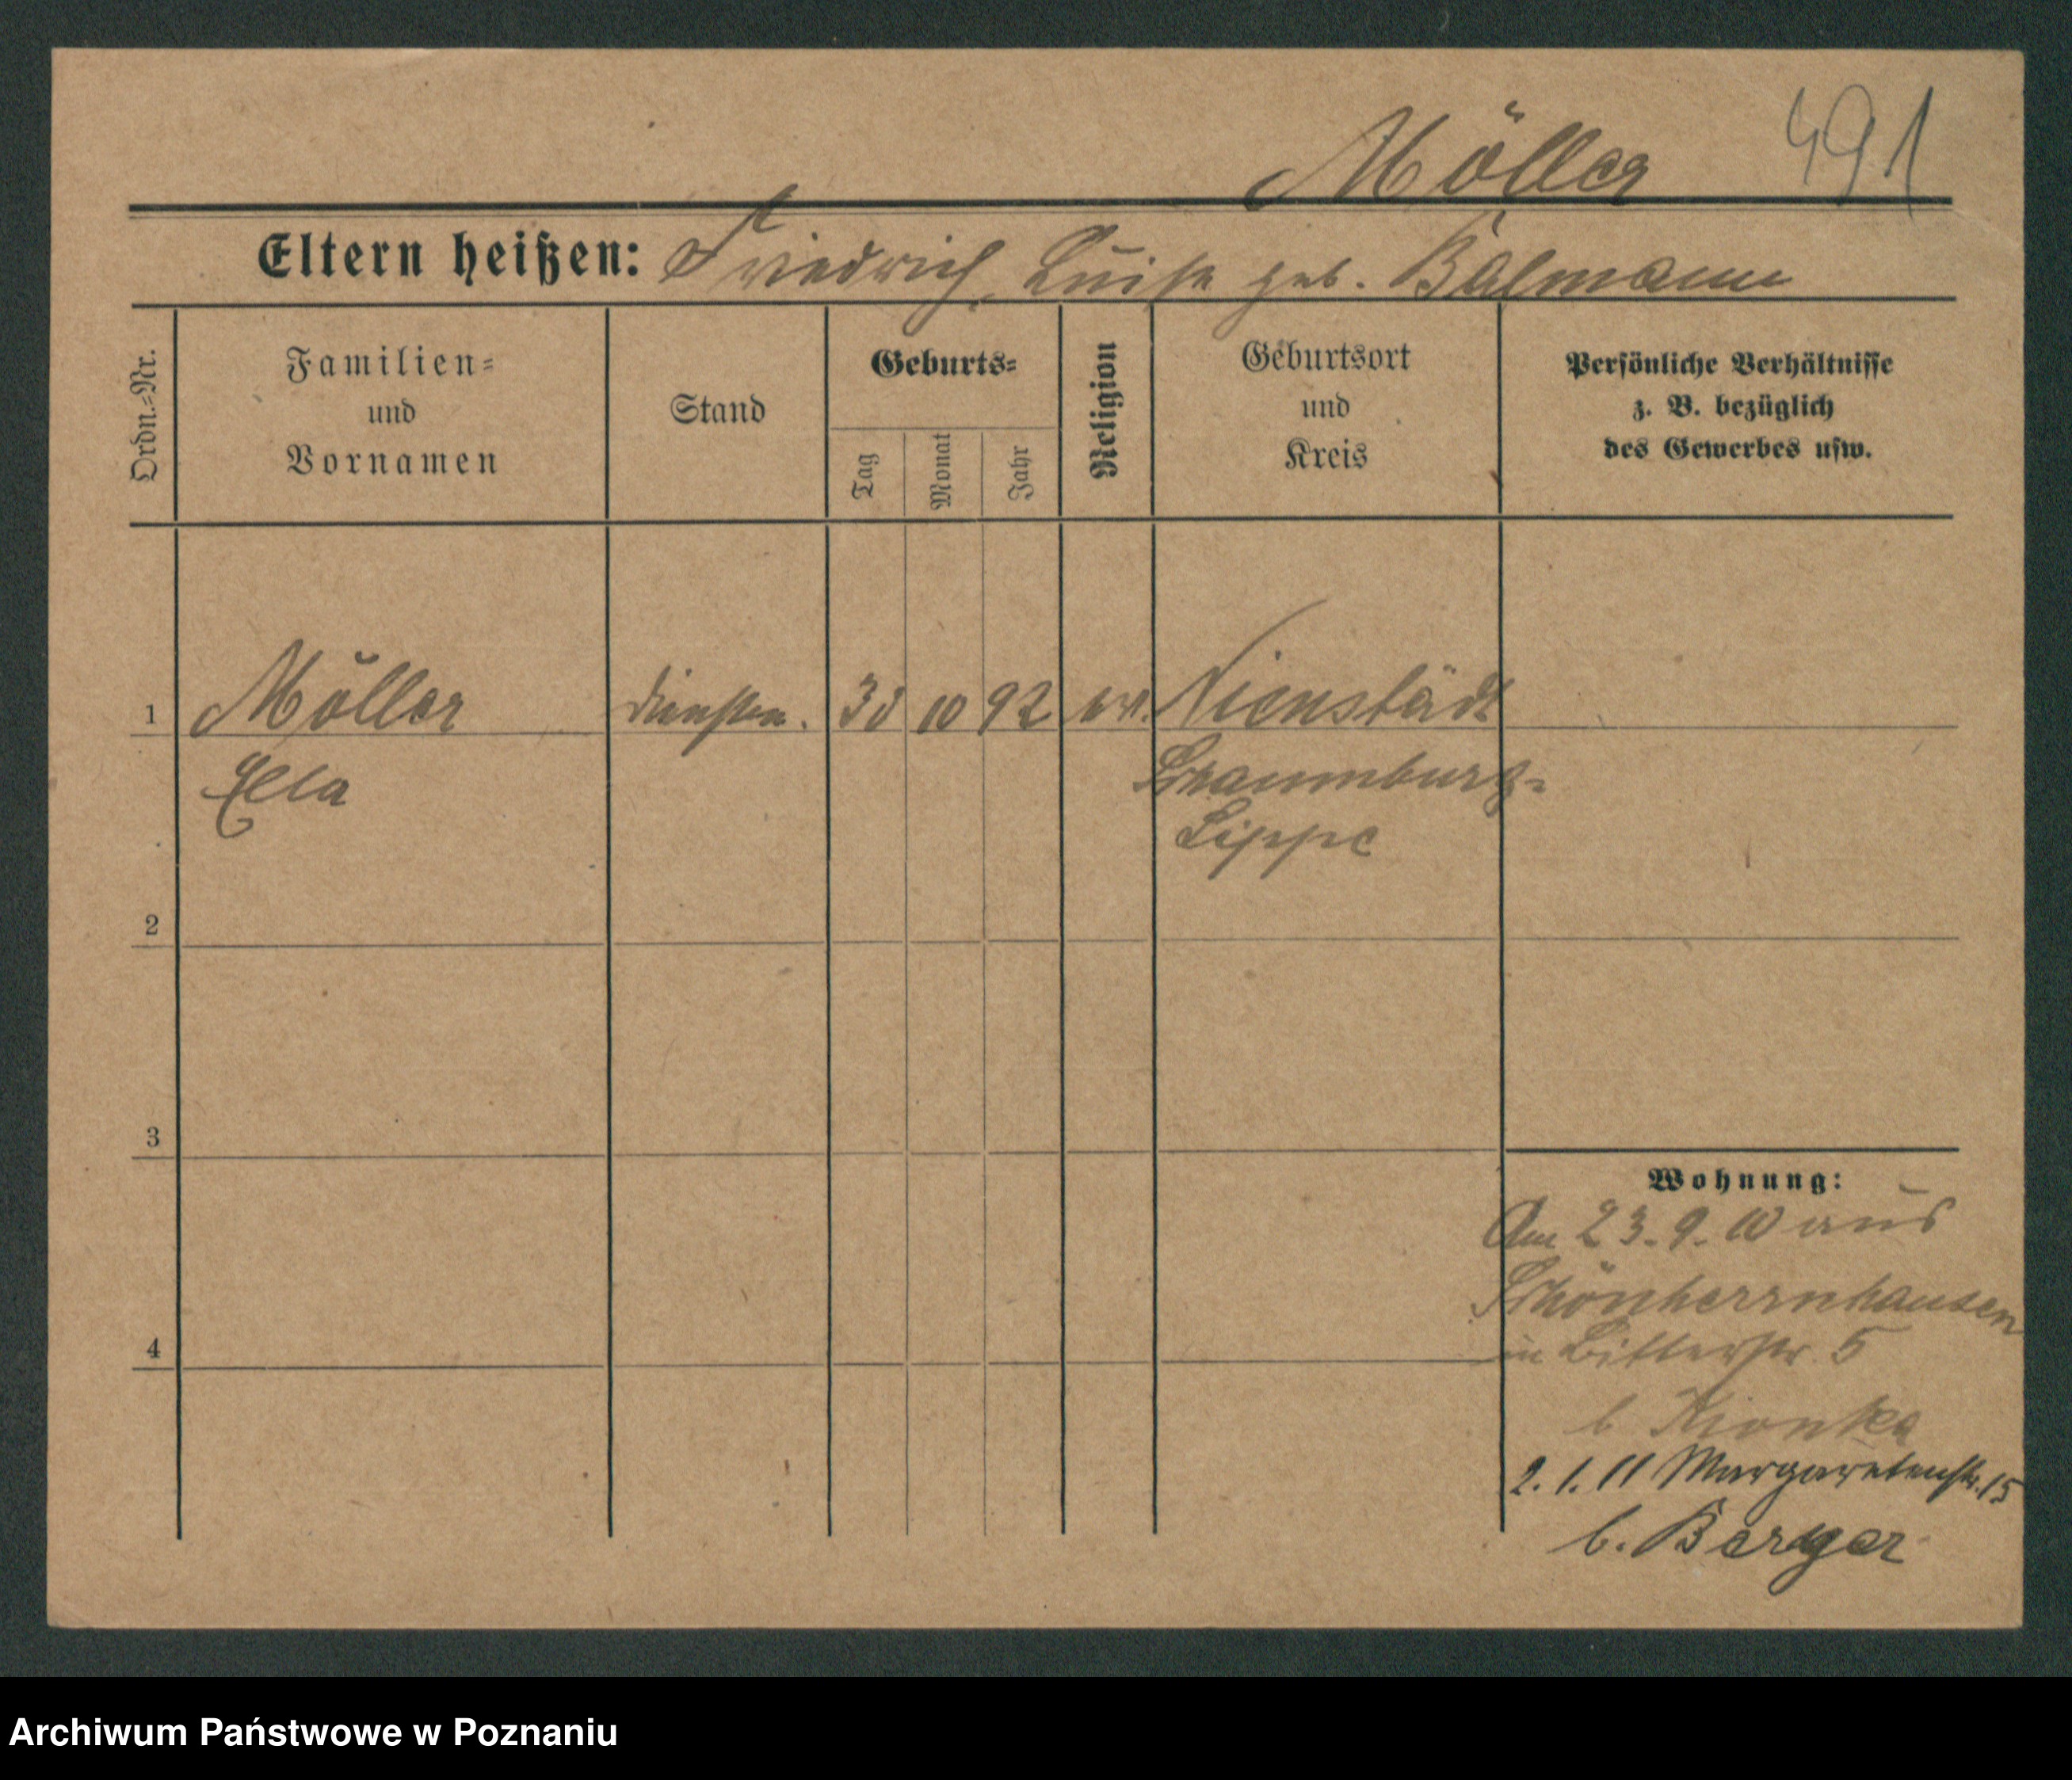 491
Möller
Eltern heißen: Friedrich, Luise geb. Balmann
Ordn.=Nr.
Familien=
und
Vornamen
Stand
Geburts=
Tag
Monat
Jahr
Religion
Geburtsort
und
Kreis
Persönliche Verhältnisse
z. B. bezüglich
des Gewerbes usw.
1 Möller 10 92 Nienstädt
Ella Schaumburg-
Lippe
2
3
4
Wohnung:
Am 23.9.10 aus
Schönherrnhausen
in 5
b Kionka
2.1.11 Margaretenstr. 15
b. Berger
Archiwum Państwowe w Poznaniu